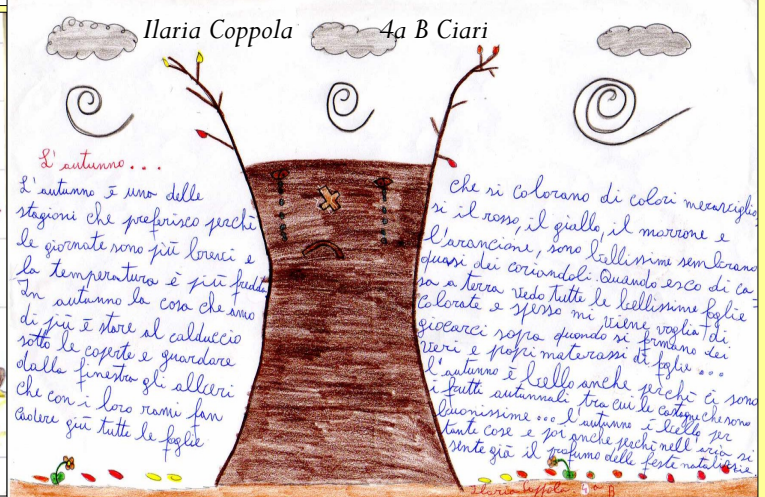 Ilaria Coppola 4a B Ciari
L'autunno...
L'autunno è una delle
stagioni che preferisco perchè
le giornate sono più brevi e
la temperatura è più fredda
In autunno la cosa che amo
di più è stare al calduccio
sotto le coperte e guardare
dalla finestra gli alberi
che con i loro rami fan
cadere giù tutte le foglie
che si colorano di colori meraviglio
si il rosso, il giallo, il marrone e
l'arancione, sono bellissime sembrano
quasi dei coriandoli. Quando esco di ca
sa a terra vedo tutte le bellissime foglie
colorate e spesso mi viene voglia di
giocarci sopra quando si formano dei
veri e propri materassi di foglie...
l'autunno è bello anche perchè ci sono
i frutti autunnali tra cui le castagne che sono
buonissime... l'autunno è bello per
tante cose e poi anche perchè nell'aria si
sente già il profumo delle feste natalizie.
Ilaria Coppola 4a B